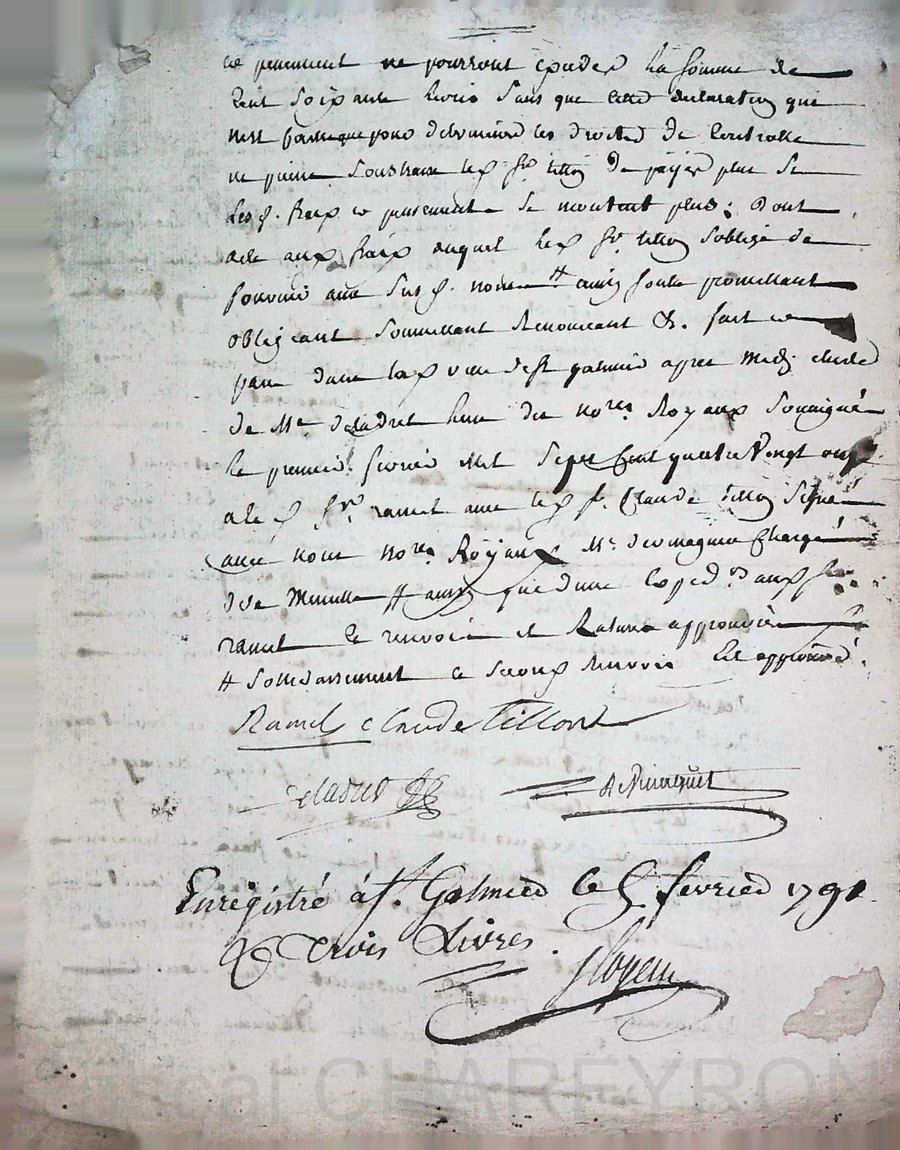 ce payement ne pourront exceder la somme de
Cent Soixante livres Sans que cette declaration qui
nest faite que pour determiner les droits de Controlle
ne puisse Soustraire led. Sr tillon de payer plus Si
lesd. fraix ce payement Se montent plus; Dont
acte aux fraix duquel led. Sr tillon Soblige de
fournir aux Susd. # ainsy fait promettant
obligeant Soumettant Renonceant &. fait ce
passé dans lad. ville de St galmier apres Midy etude
de Me deladret lun des nores Royaux Soussigné
le premier fevrier Mil Sept Cent quatre Vingt onze
Sr. ramel avec led. Sr. Claude tillon Signé
avec nous nores Royaux Me. Chargé
de Minutte # ainsy que dune Exped. aud. Sr.
ramel le renvoi et Rature approuvée
# Solidairement ce Second Renvoi Est approuvé.
Ramel Claude Tillon
Enregistré à St. Galmier le 5 fevrier 1791
R trois Livres.
Pascal CHAREYRON